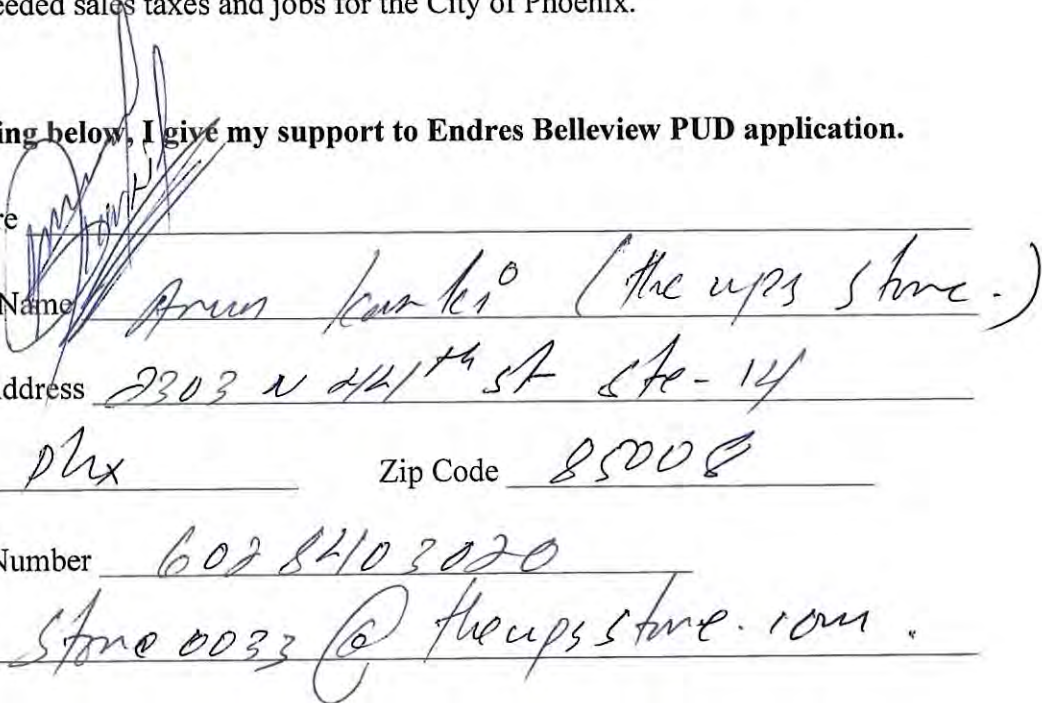 eeded sales taxes and jobs for the City of Phoenix.
ing below, I give my support to Endres Belleview PUD application.
re
Name Arun karki (the ups store.)
Address 2303 N 44th st ste-14
phx Zip Code 85008
Number 602 840 3020
store0033@theupsstore.com.